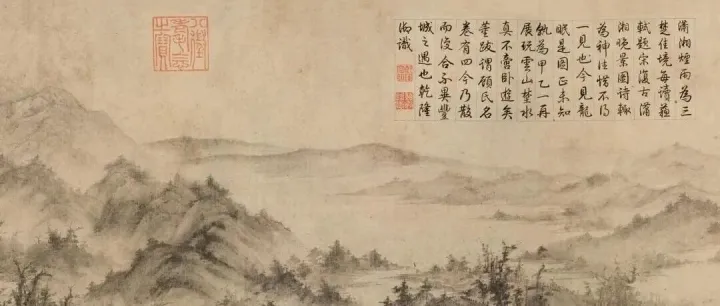 八徵
耄念
之寶
瀟湘煙雨為三
楚佳境每讀蘇
軾題宋復古瀟
湘晚景圖詩輒
為神往惜不得
一見也今見龍
眠是圖正未知
孰為甲乙一再
展玩雲山楚水
真不啻卧遊矣
董跋謂顧氏名
卷有四今乃散
而復合不異豐
城之遇也乾隆
御識